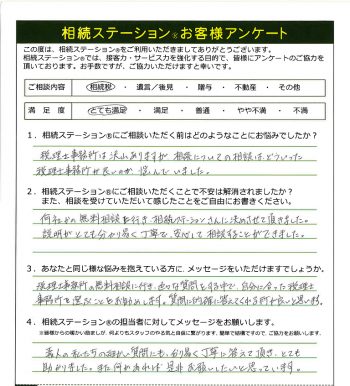 相続ステーション®お客様アンケート
この度は、相続ステーション®をご利用いただきましてありがとうございます。
相続ステーション®では、接客力・サービス力を強化する目的で、皆様にアンケートのご協力を
頂いております。お手数ですが、ご協力いただけますと幸いです。
ご相談内容 相続税 ・ 遺言/後見 ・ 贈与 ・ 不動産 ・ その他
満足度 とても満足 ・ 満足 ・ 普通 ・ やや不満 ・ 不満
1.相続ステーション®にご相談いただく前はどのようなことにお悩みでしたか?
税理士事務所は沢山ありますが 相続についての相談は、どういった
税理士事務所が良いのか 悩んでいました。
2.相続ステーション®にご相談いただくことで不安は解消されましたか?
また、相談を受けていただいて感じたことをご自由にお書きください。
何社かの無料相談を行き 相続ステーションさんに決めさせて頂きました。
説明がとても分かり易く丁寧で、安心して相談することができました。
3.あなたと同じ様な悩みを抱えている方に、メッセージをいただけますでしょうか。
税理士事務所の無料相談に行き、色々な質問をする中で、自分に合った税理士
事務所を選ぶことをお勧めします。質問に的確に答えてくれる所が良いと思います。
4.相続ステーション®の担当者に対してメッセージをお願いします。
※皆様からの暖かい励ましが、何よりもスタッフのやる気と自信に繋がります。簡単で結構ですので、ご協力をお願いします。
素人の私たちの細かい質問にも、分り易く丁寧に答えて頂き、とても
助かりました。また何かあれば 是非お願いしたいと思っています。